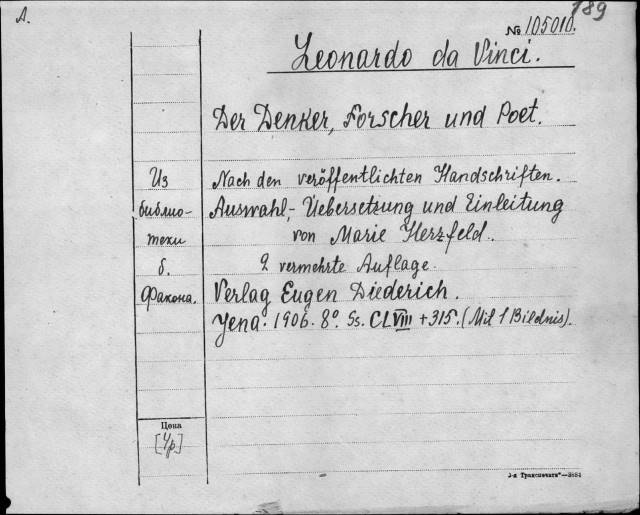 A.
189
№ 105010.
Leonardo da Vinci.
Der Denker, Forscher und Poet.
Из
библио-
теки
б.
Факона.
Nach den veröffentlichten Handschriften.
Auswahl,- Uebersetzung und Einleitung
von Marie Herzfeld.
2 vermehrte Auflage.
Verlag Eugen Diederich.
Jena. 1906. 8º. Ss. CLVIII + 315. (Mil 1 Bildnis).
Цена
[4р]
3-я Транспечать—3884